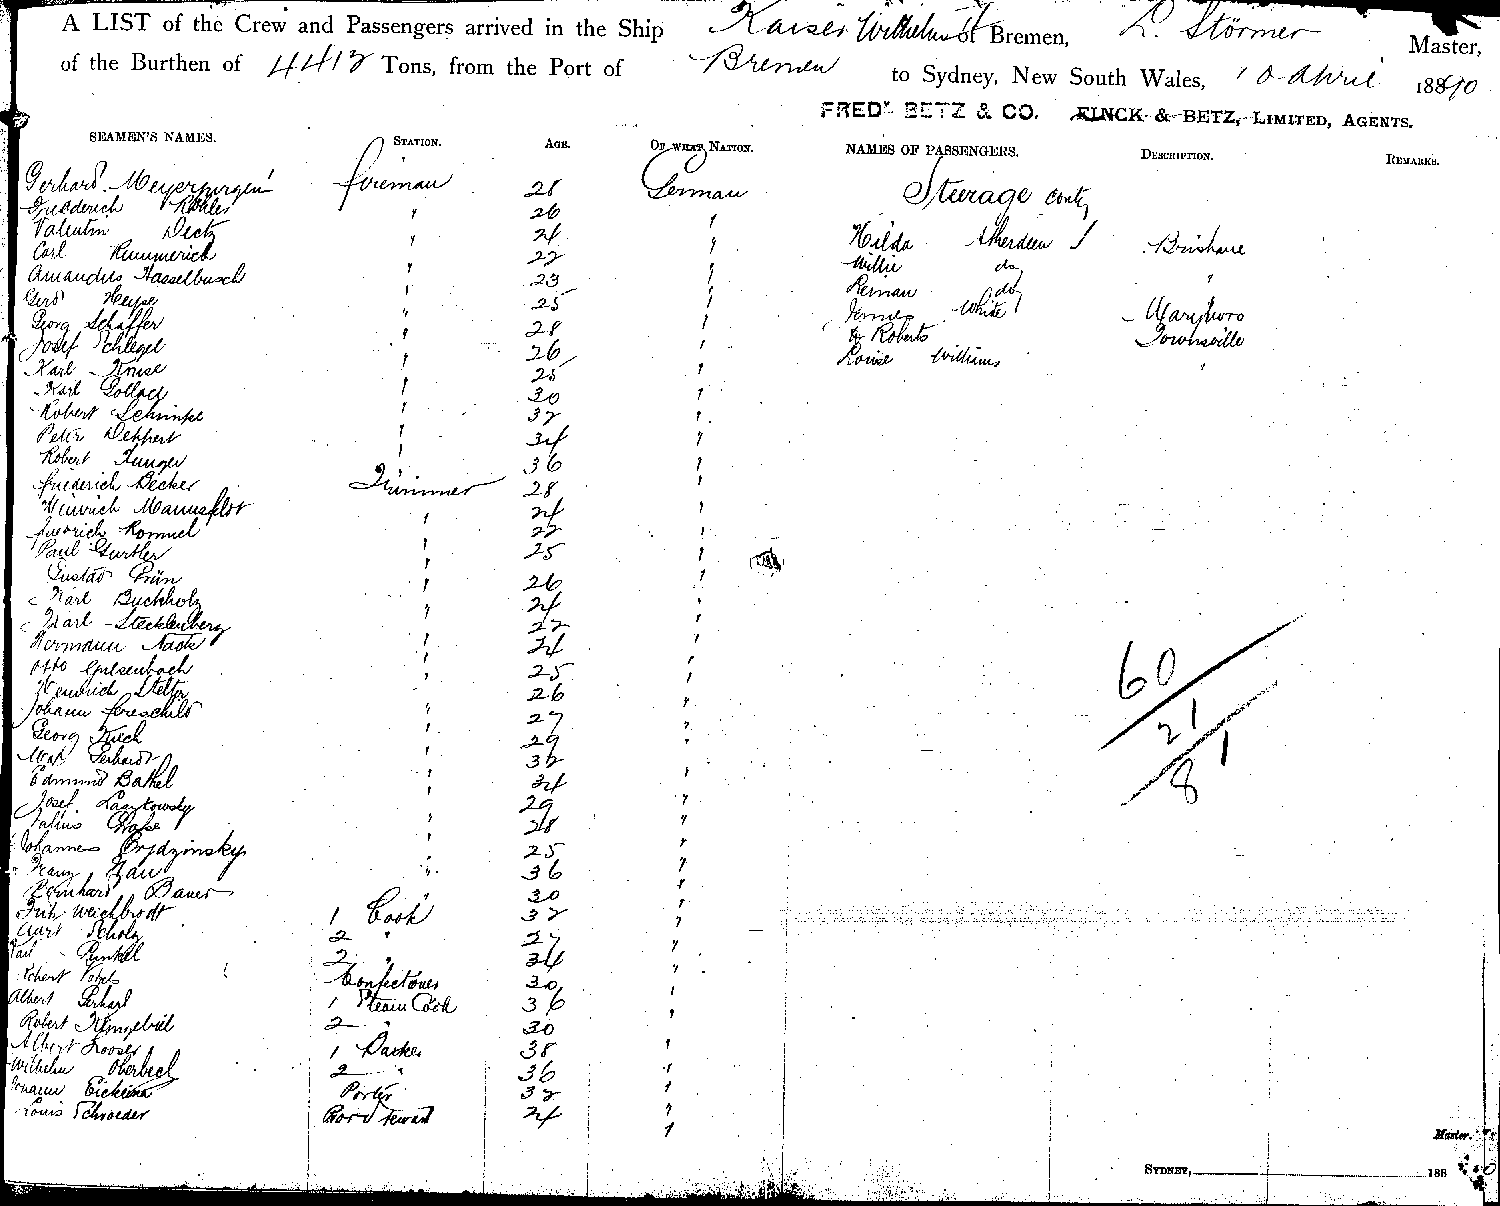 A LIST of the Crew and Passengers arrived in the Ship Kaiser Wilhelm II of Bremen, L. Störmer Master,
of the Burthen of 4412 Tons, from the Port of Bremen to Sydney, New South Wales, 10 April 1890
FREDK BETZ & CO. FINCK & BETZ, LIMITED, AGENTS.
SEAMEN'S NAMES. STATION. AGE. OF WHAT NATION. NAMES OF PASSENGERS. DESCRIPTION. REMARKS.
Gerhard Meyerjurgens foreman 28 German Steerage contd
Friederich Köhler " 26 "
Valentin Dietz " 24 " Hilda Aberdeen Brisbane
Carl Kummerich " 22 " Willie do "
Amandus Hasselbusch " 23 " do
Gerd Heyse " 25 " James White Maryboro
Georg Schäffer " 28 " Roberts Townsville
Josef Schlegel " 26 " Louise Williams "
Karl Kruse " 25 "
Karl Gollach " 30 "
Robert Schimke " 32 "
Peter Deppert " 34 "
Robert Junger " 36 "
Friederich Becker Trimmer 28 "
Heinrich Mannsflot " 24 "
Friedrich Rommel " 22 "
Paul Gurtler " 25 "
Gustav Grün " 26 "
Karl Buckholz " 24 "
Karl Stecklenberg " 22 "
Hermann Naok " 24 "
Otto " 25 "
Heinrich Stelter " 26 "
Johann " 27 "
Georg " 29 "
Max Gerhardt " 32 "
Edmund Bathel " 34 "
Josef Laszkowsky " 29 "
Julius " 28 "
Johannes " 25 "
Franz " 36 "
Reinhard Bauer " 30 "
Fritz Weichbrodt 1 Cook 32 "
Curt Scholz 2 " 27 "
Paul Punkel 2 " 34 "
Robert Confectioner 30 "
Albert Gerhard 1 Steam Cook 36 "
Robert Klingebiel 2 " 30 "
Albert Looser 1 Baker 38 "
Wilhelm Oberbeck 2 " 36 "
Johann Porter 32 "
Louis Schroeder Bord Steward 24 "
60
21
1
8
Master.
SYDNEY, 188